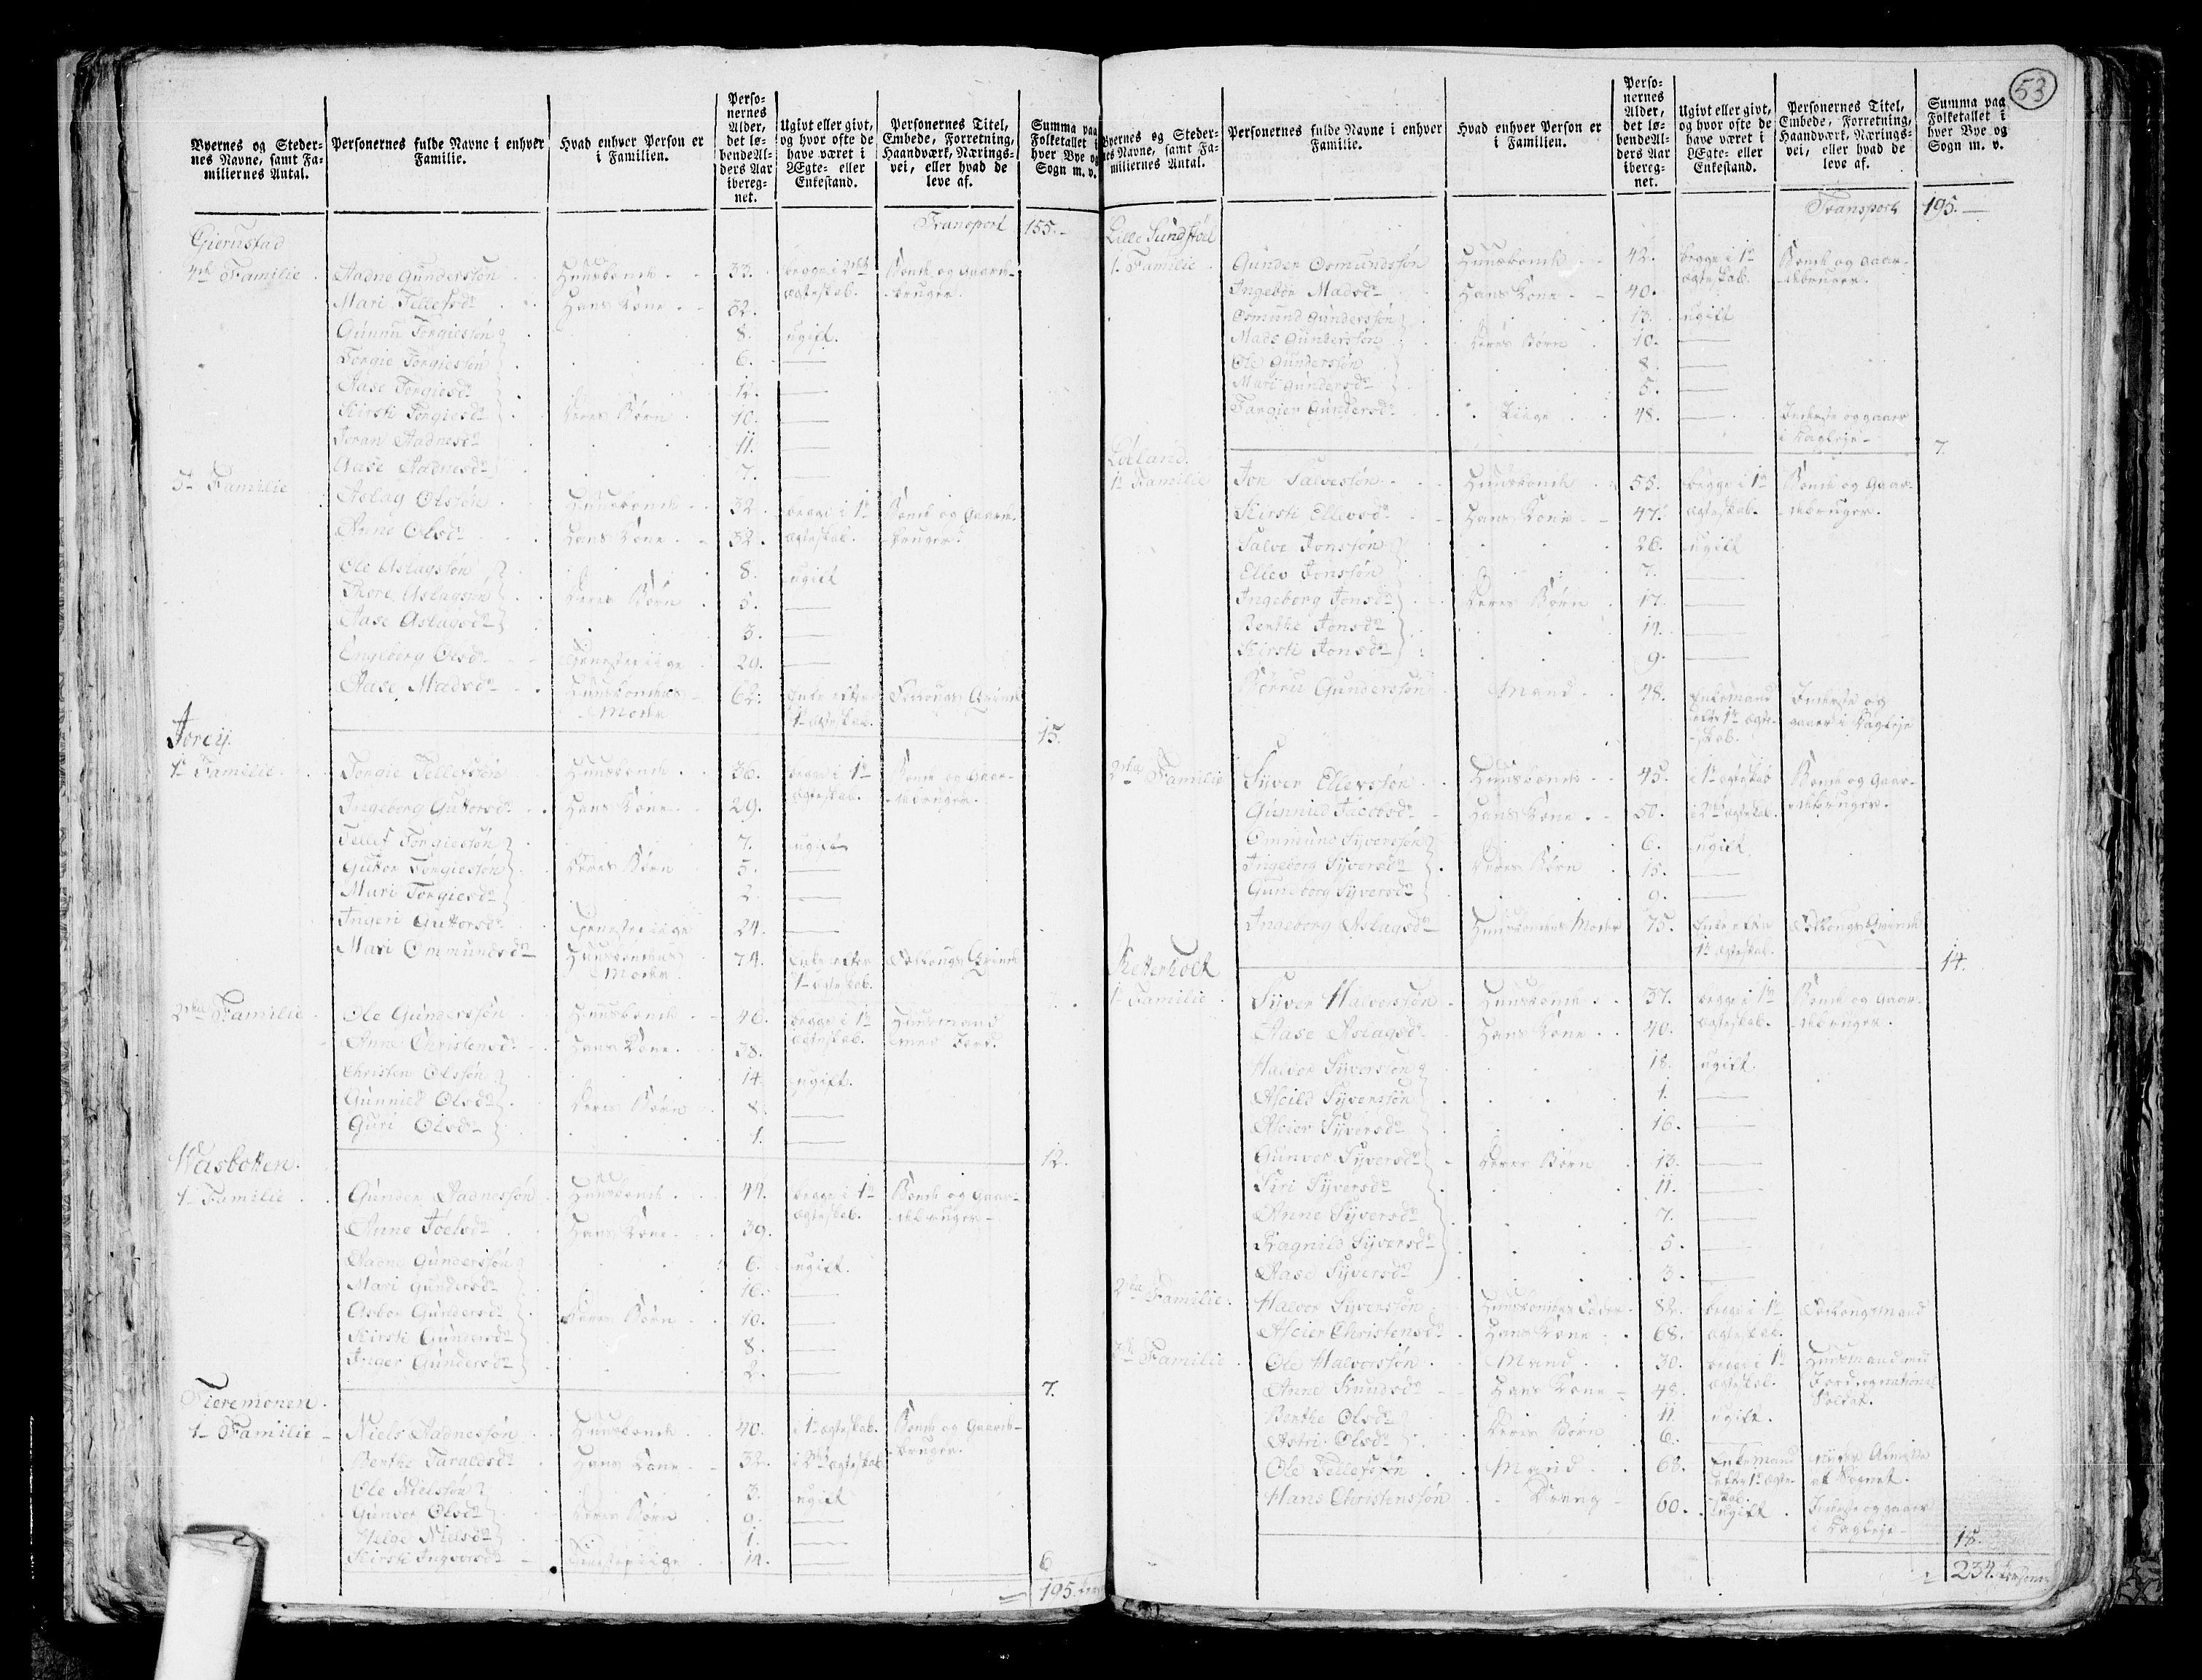 53
Byernes og Steder-
nes Navne, samt Fa-
miliernes Antal.
Personernes fulde Navne i enhver
Familie.
Hvad enhver Person er
i Familien.
Perso-
nernes
Alder,
det lø-
bende Al-
ders Aar
ibereg-
net.
Ugivt eller givt,
og hvor ofte de
have været i
Ægte- eller
Enkestand.
Personernes Titel,
Embede, Forretning,
Haandværk, Nærings-
vei, eller hvad de
leve af.
Summa paa
Folketallet i
hver Bye og
Sogn m. v.
Transport 155.
Gierustad
4de Familie Aadne Gunderssøn Huusbonde 33. begge i 2det Bonde og Gaard-
ægteskab. bruger.
Mari Tellefsdr Hans Kone 32.
Gunnu Torgiessøn 8. ugift.
Torgie Torgiessøn 6. —
Aase Torgiesdr 12. —
Kirsti Torgiesdr Deres Børn 10. —
Joran Aadnesdr 11. —
Aase Aadnesdr 7. —
5te Familie Aslag Olssøn Huusbonde 32. begge i 1te Bonde og Gaard-
ægteskab. bruger.
Anne Olsdr Hans Kone 32.
Ole Aslagssøn 8. ugift
Thore Aslagssøn Deres Børn 5. —
Aase Aslagsdr 3. —
Engeborg Olsdr Tienestepiige 20. —
Aase Madsdr Huusbondens 62. Enke efter
Moder 1te ægteskab.
15.
Torey.
1te Familie Torgie Tellefssøn Huusbonde 36. begge i 1te Bonde og Gaar-
ægteskab. debruger.
Ingeborg Guttorsdr Hans Kone 29.
Tellef Torgiessøn 7. ugift
Guttor Torgiessøn Deres Børn 5. —
Mari Torgiesdr 2. —
Ingeri Guttorsdr Tienestepiige 24. —
Mari Ommundsdr Huusbondens 74. Enke efter
Moder 1te ægteskab.
2den Familie Ole Gunderssøn Huusbonde 46. begge i 1te Huusmand
ægteskab. med Jord.
Anne Christensdr Hans Kone 38.
Christen Olssøn 14. ugift.
Gunnild Olsdr Deres Børn 8. —
Guri Olsdr 1. —
12.
Weisbotten.
1te Familie Gunder Aadnessøn Huusbonde 44. begge i 1te Bonde og Gaar-
ægteskab. debruger.
Anne Joelsdr Hans Kone 39.
Aadne Gunderssøn 6. ugift.
Mari Gundersdr 16. —
Asbor Gundersdr Deres Børn 10. —
Kirsti Gundersdr 8. —
Inger Gundersdr 2. —
7.
Fieremonen.
1te Familie Niels Aadnessøn Huusbonde 40. i 1te ægteskab. Bonde og Gaard-
bruger.
Berthe Taraldsdr Hans Kone 32. i 2det ægteskab
Ole Nielssøn 3. ugift
Gunvor Olsdr Deres Børn 9. —
Helge Nielsdr 1. —
Kirsti Ingversdr Tienestepiige 14. —
6
195.
Byernes og Steder-
nes Navne, samt Fa-
miliernes Antal.
Personernes fulde Navne i enhver
Familie.
Hvad enhver Person er
i Familien.
Perso-
nernes
Alder,
det lø-
bende Al-
ders Aar
ibereg-
net.
Ugivt eller givt,
og hvor ofte de
have været i
Ægte- eller
Enkestand.
Personernes Titel,
Embede, Forretning,
Haandværk, Nærings-
vei, eller hvad de
leve af.
Summa paa
Folketallet i
hver Bye og
Sogn m. v.
Transport 195.
Lille Sundstøel
1. Familie Gunder Osmundssøn Huusbonde 42. begge i 1te Bonde og Gaar-
ægteskab. debruger.
Ingebor Madsdr Hans Kone 40.
Osmund Gunderssøn 13. ugift
Mads Gunderssøn Deres Børn 10. —
Ole Gunderssøn 8. —
Mari Gundersdr 5. —
Targier Gundersdr Piige 48. — Inderste og gaaer
i Dagleje
7.
Lolland.
1te Familie Jon Salvessøn Huusbonde 55. begge i 1te Bonde og Gaar-
ægteskab. debruger.
Kirsti Ellevsdr Hans Kone 47.
Salve Jonssøn 20. ugift
Ellev Jonssøn 7. —
Ingeborg Jonsdr Deres Børn 17. —
Berthe Jonsdr 14. —
Kirsti Jonsdr 9. —
Gunderssøn Mand 48. Enkemand Inderste og
efter 1te ægte- gaaer i Dagleje
skab.
2den Familie Syver Ellevssøn Huusbonde 45. i 1te ægteskab Bonde og Gaar-
debruger.
Gunnild Jacobsdr Hans Kone 50. i 2det ægteskab.
Ommund Syverssøn 6. ugift
Ingeborg Syversdr Deres Børn 15. —
Guneborg Syversdr 9. —
Ingeborg Aslagsdr Huusbondens Moder 75. Enke efter
1te ægteskab.
14.
Retterholt
1te Familie Syver Halvorssøn Huusbonde 37. begge i 1te Bonde og Gaar-
ægteskab. debruger.
Aase Aslagsdr Hans Kone 40.
Halvor Syverssøn 18. ugift.
Alleild Syverssøn 1. —
Syversdr 16. —
Gunvor Syversdr Deres Børn 13. —
Siri Syversdr 11. —
Anne Syversdr 7. —
Ragnild Syversdr 5. —
Aase Syversdr 3. —
2den Familie Halvor Syverssøn Huusbondens Fader 82. begge i 1te
ægteskab.
Christensdr Hans Kone 68.
3die Familie Ole Halvorssøn Mand 30. begge i 1te Huusmand med
ægteskab. Jord og national
Soldat.
Anne Knudsdr Hans Kone 48.
Berthe Olsdr 11. ugift.
Astri Olsdr Deres Børn 6. —
Ole Tellefssøn Mand 68. Enkemand nyder Almisse
efter 1te ægte- af Sognet.
skab.
Hans Christenssøn Dreng 60. ugift Inderste og gaaer
i Dagleje
18.
234.